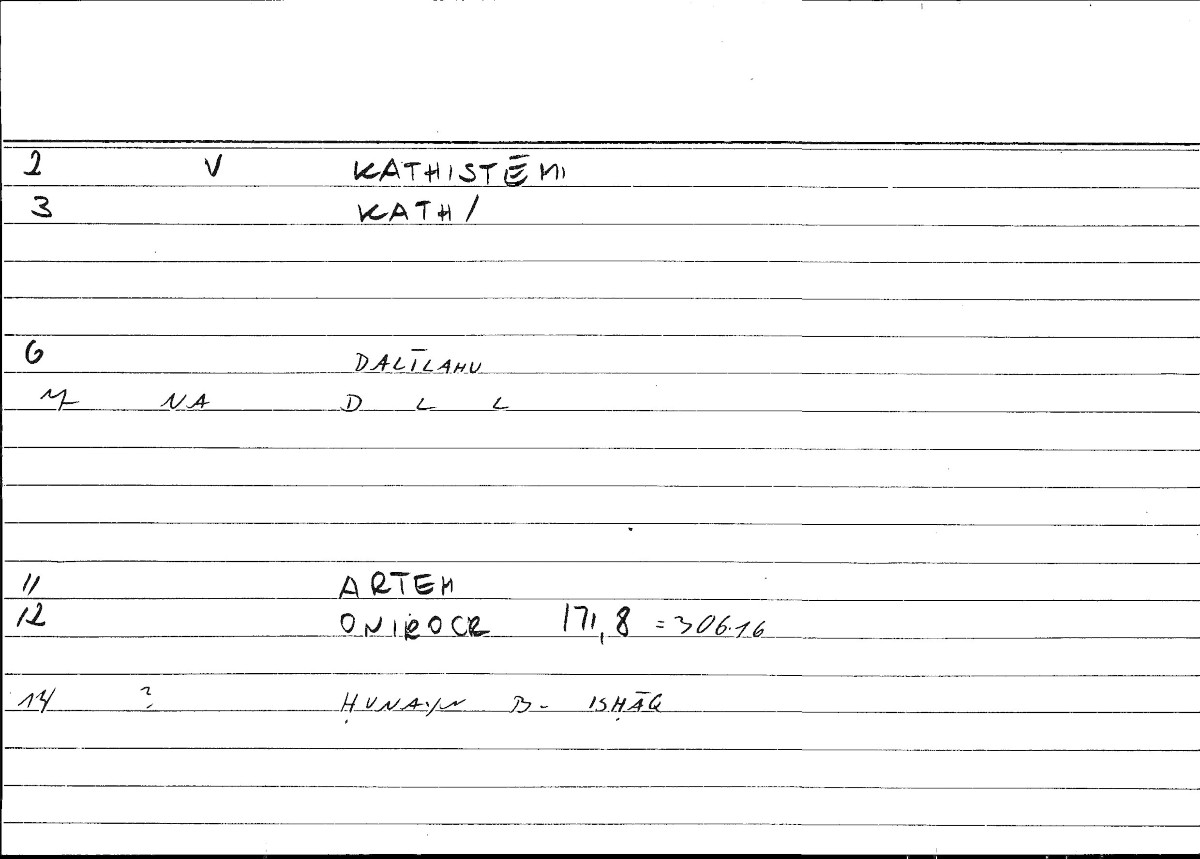 2 V KATHISTĒMI
3 KATH/
6 DALĪLAHU
7 NA D L L
11 ARTEM
12 ONIROCR 171,8 =306.16
14 ? ḤUNAYN B- ISḤĀQ